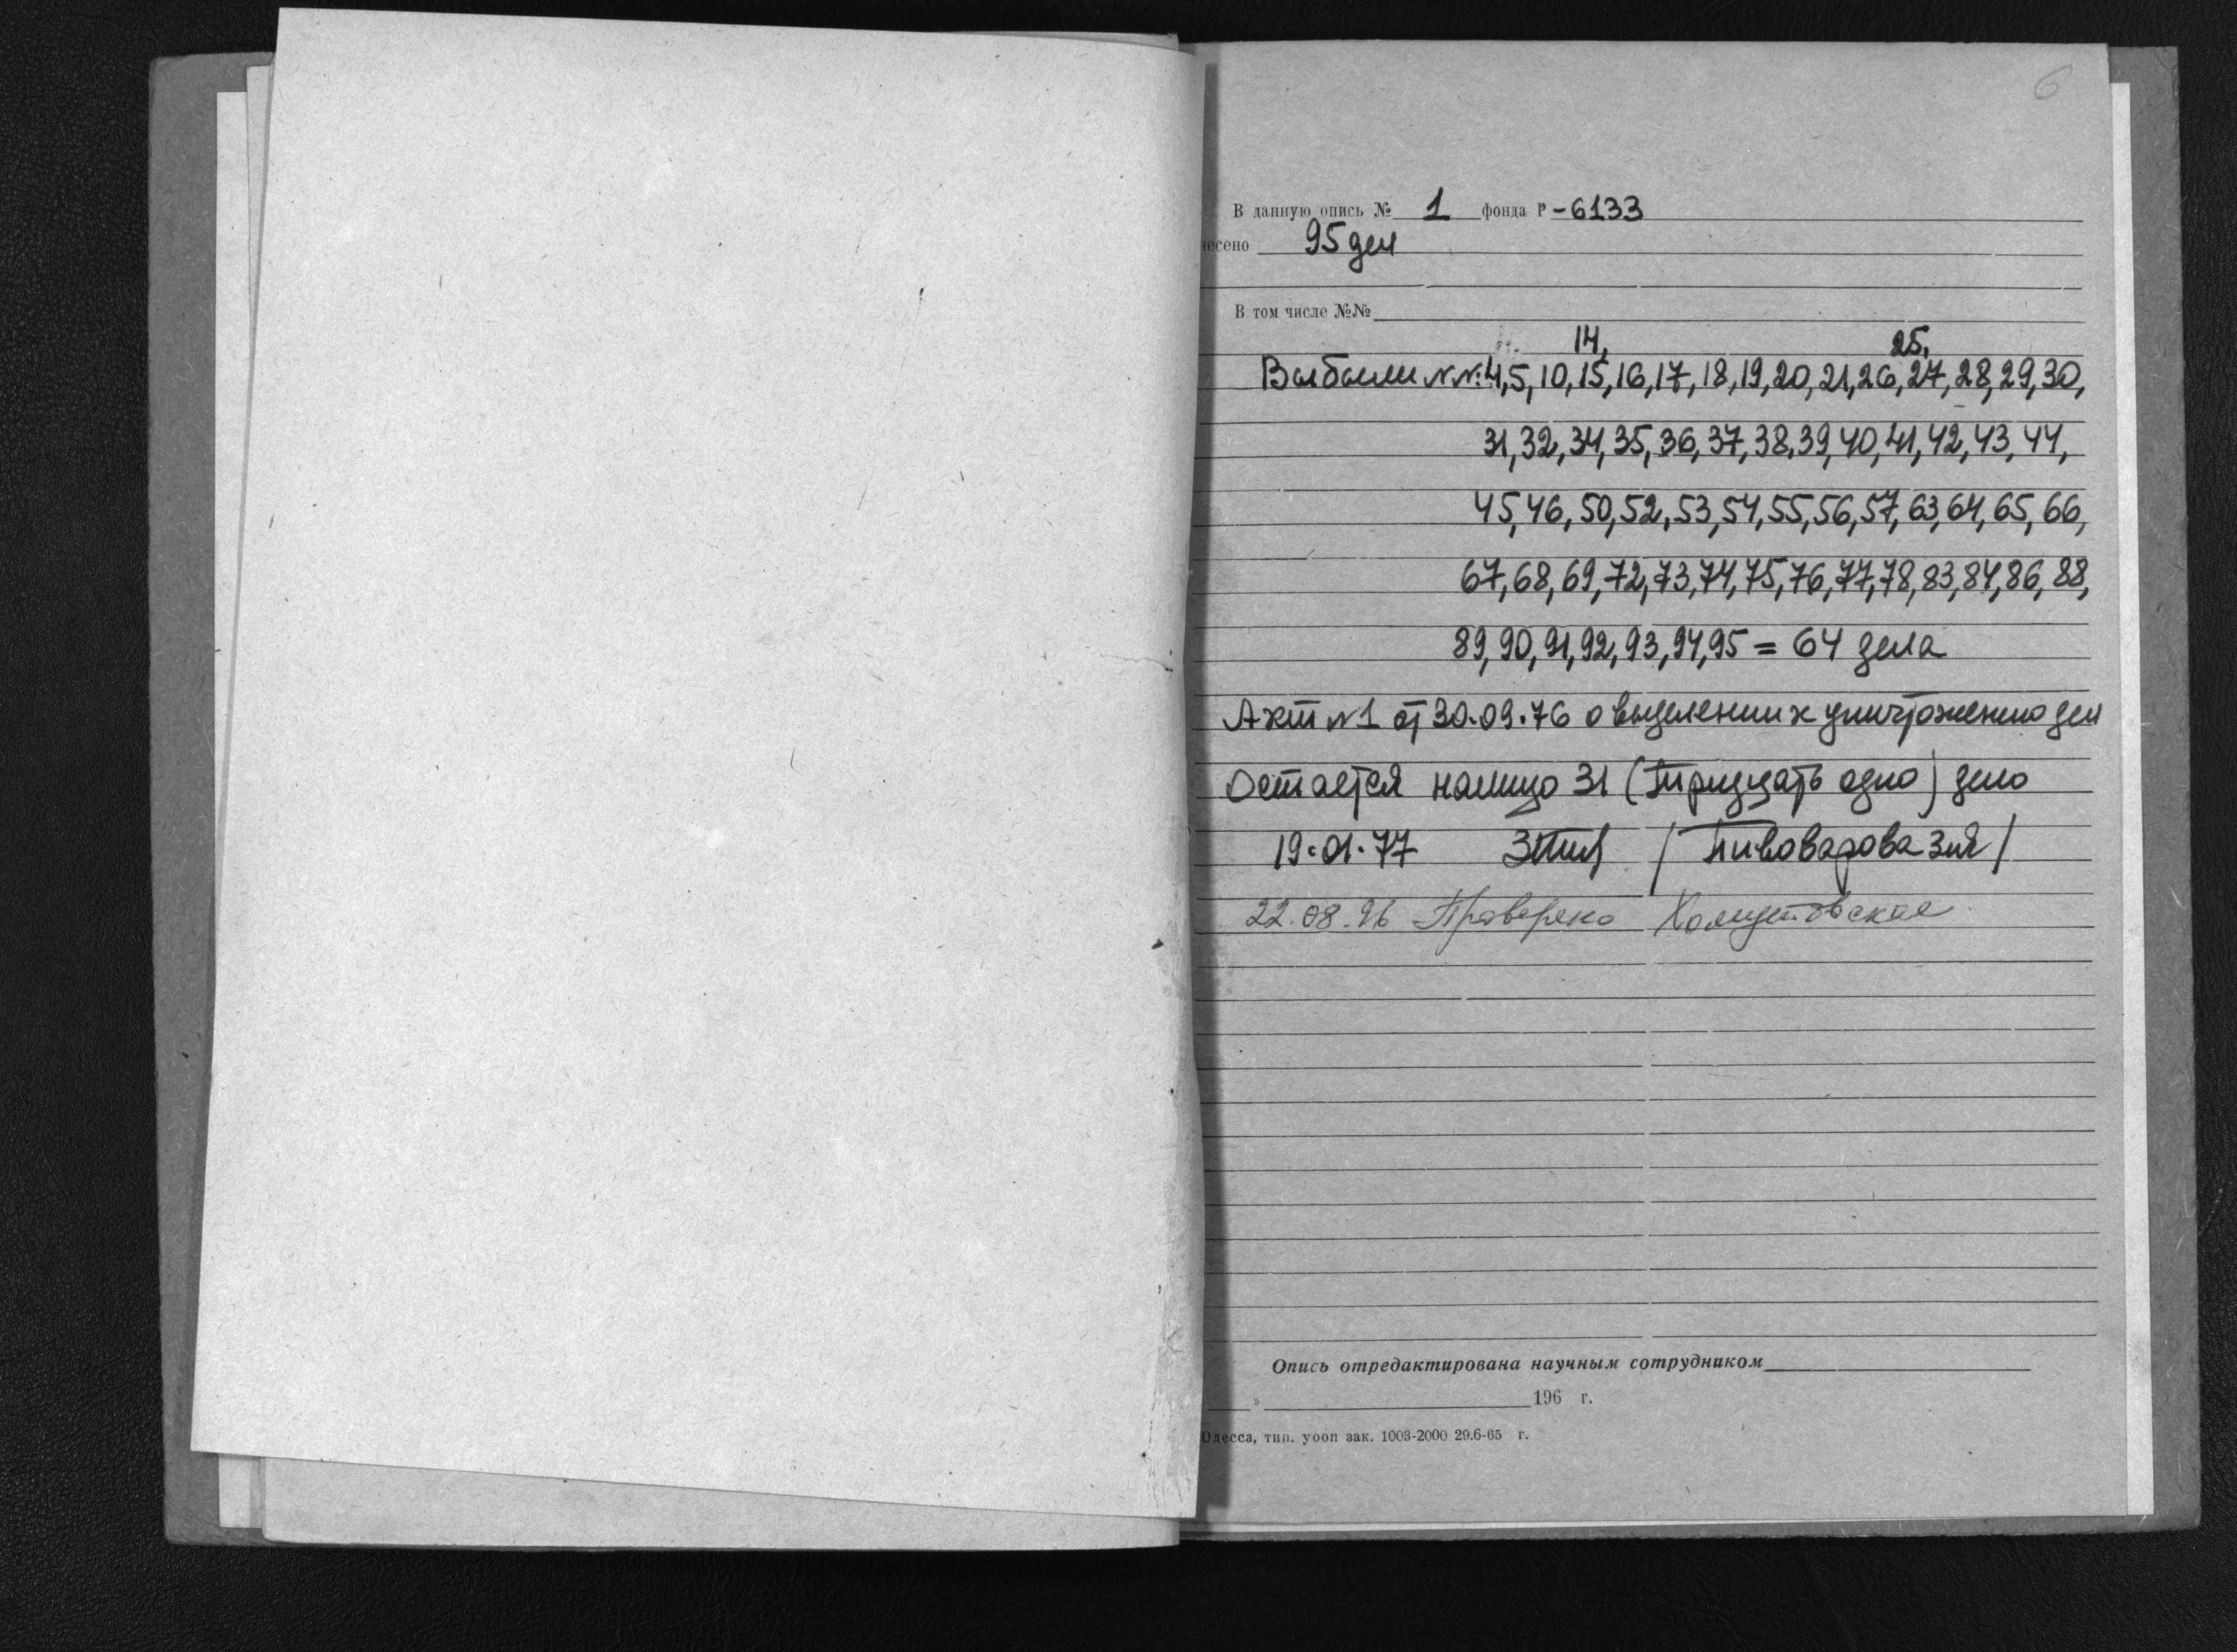 6
В данную опись № 1 фонда Р-6133
несено 95 дел
В том числе №№
14, 25,
Выбыли №№: 4, 5, 10, 15, 16, 17, 18, 19, 20, 21, 26, 27, 28, 29, 30,
31, 32, 34, 35, 36, 37, 38, 39, 40, 41, 42, 43, 44,
45, 46, 50, 52, 53, 54, 55, 56, 57, 63, 64, 65, 66,
67, 68, 69, 72, 73, 74, 75, 76, 77, 78, 83, 84, 86, 88,
89, 90, 91, 92, 93, 94, 95 = 64 дела
Акт №1 от 30.09.76 о выделении к уничтожению дел
Остается налицо 31 (Тридцать одно) дело
19.01.77 / Пивоварова ЗЯ /
22.08.96 Проверено Хомутовская
Опись отредактирована научным сотрудником
» 196 г.
Одесса, тип. уооп зак. 1003-2000 29.6-65 г.